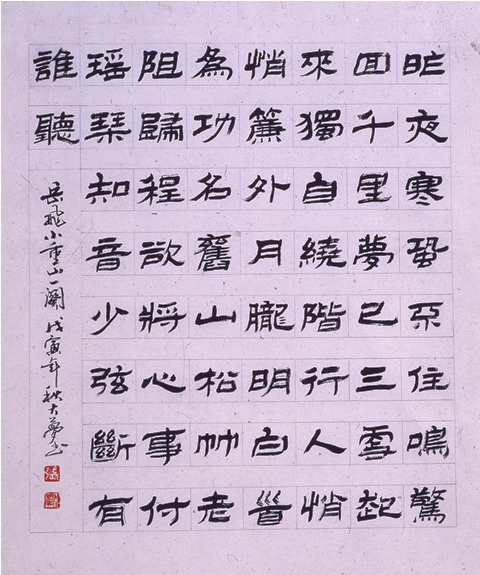 昨夜寒蛩不住鳴驚
回千里夢已三更起
來獨自繞階行人悄
悄簾外月朧明白首
為功名舊山松竹老
阻歸程欲將心事付
瑶琴知音少弦斷有
誰聽
岳飛小重山一闋 戊寅年秋大夢書